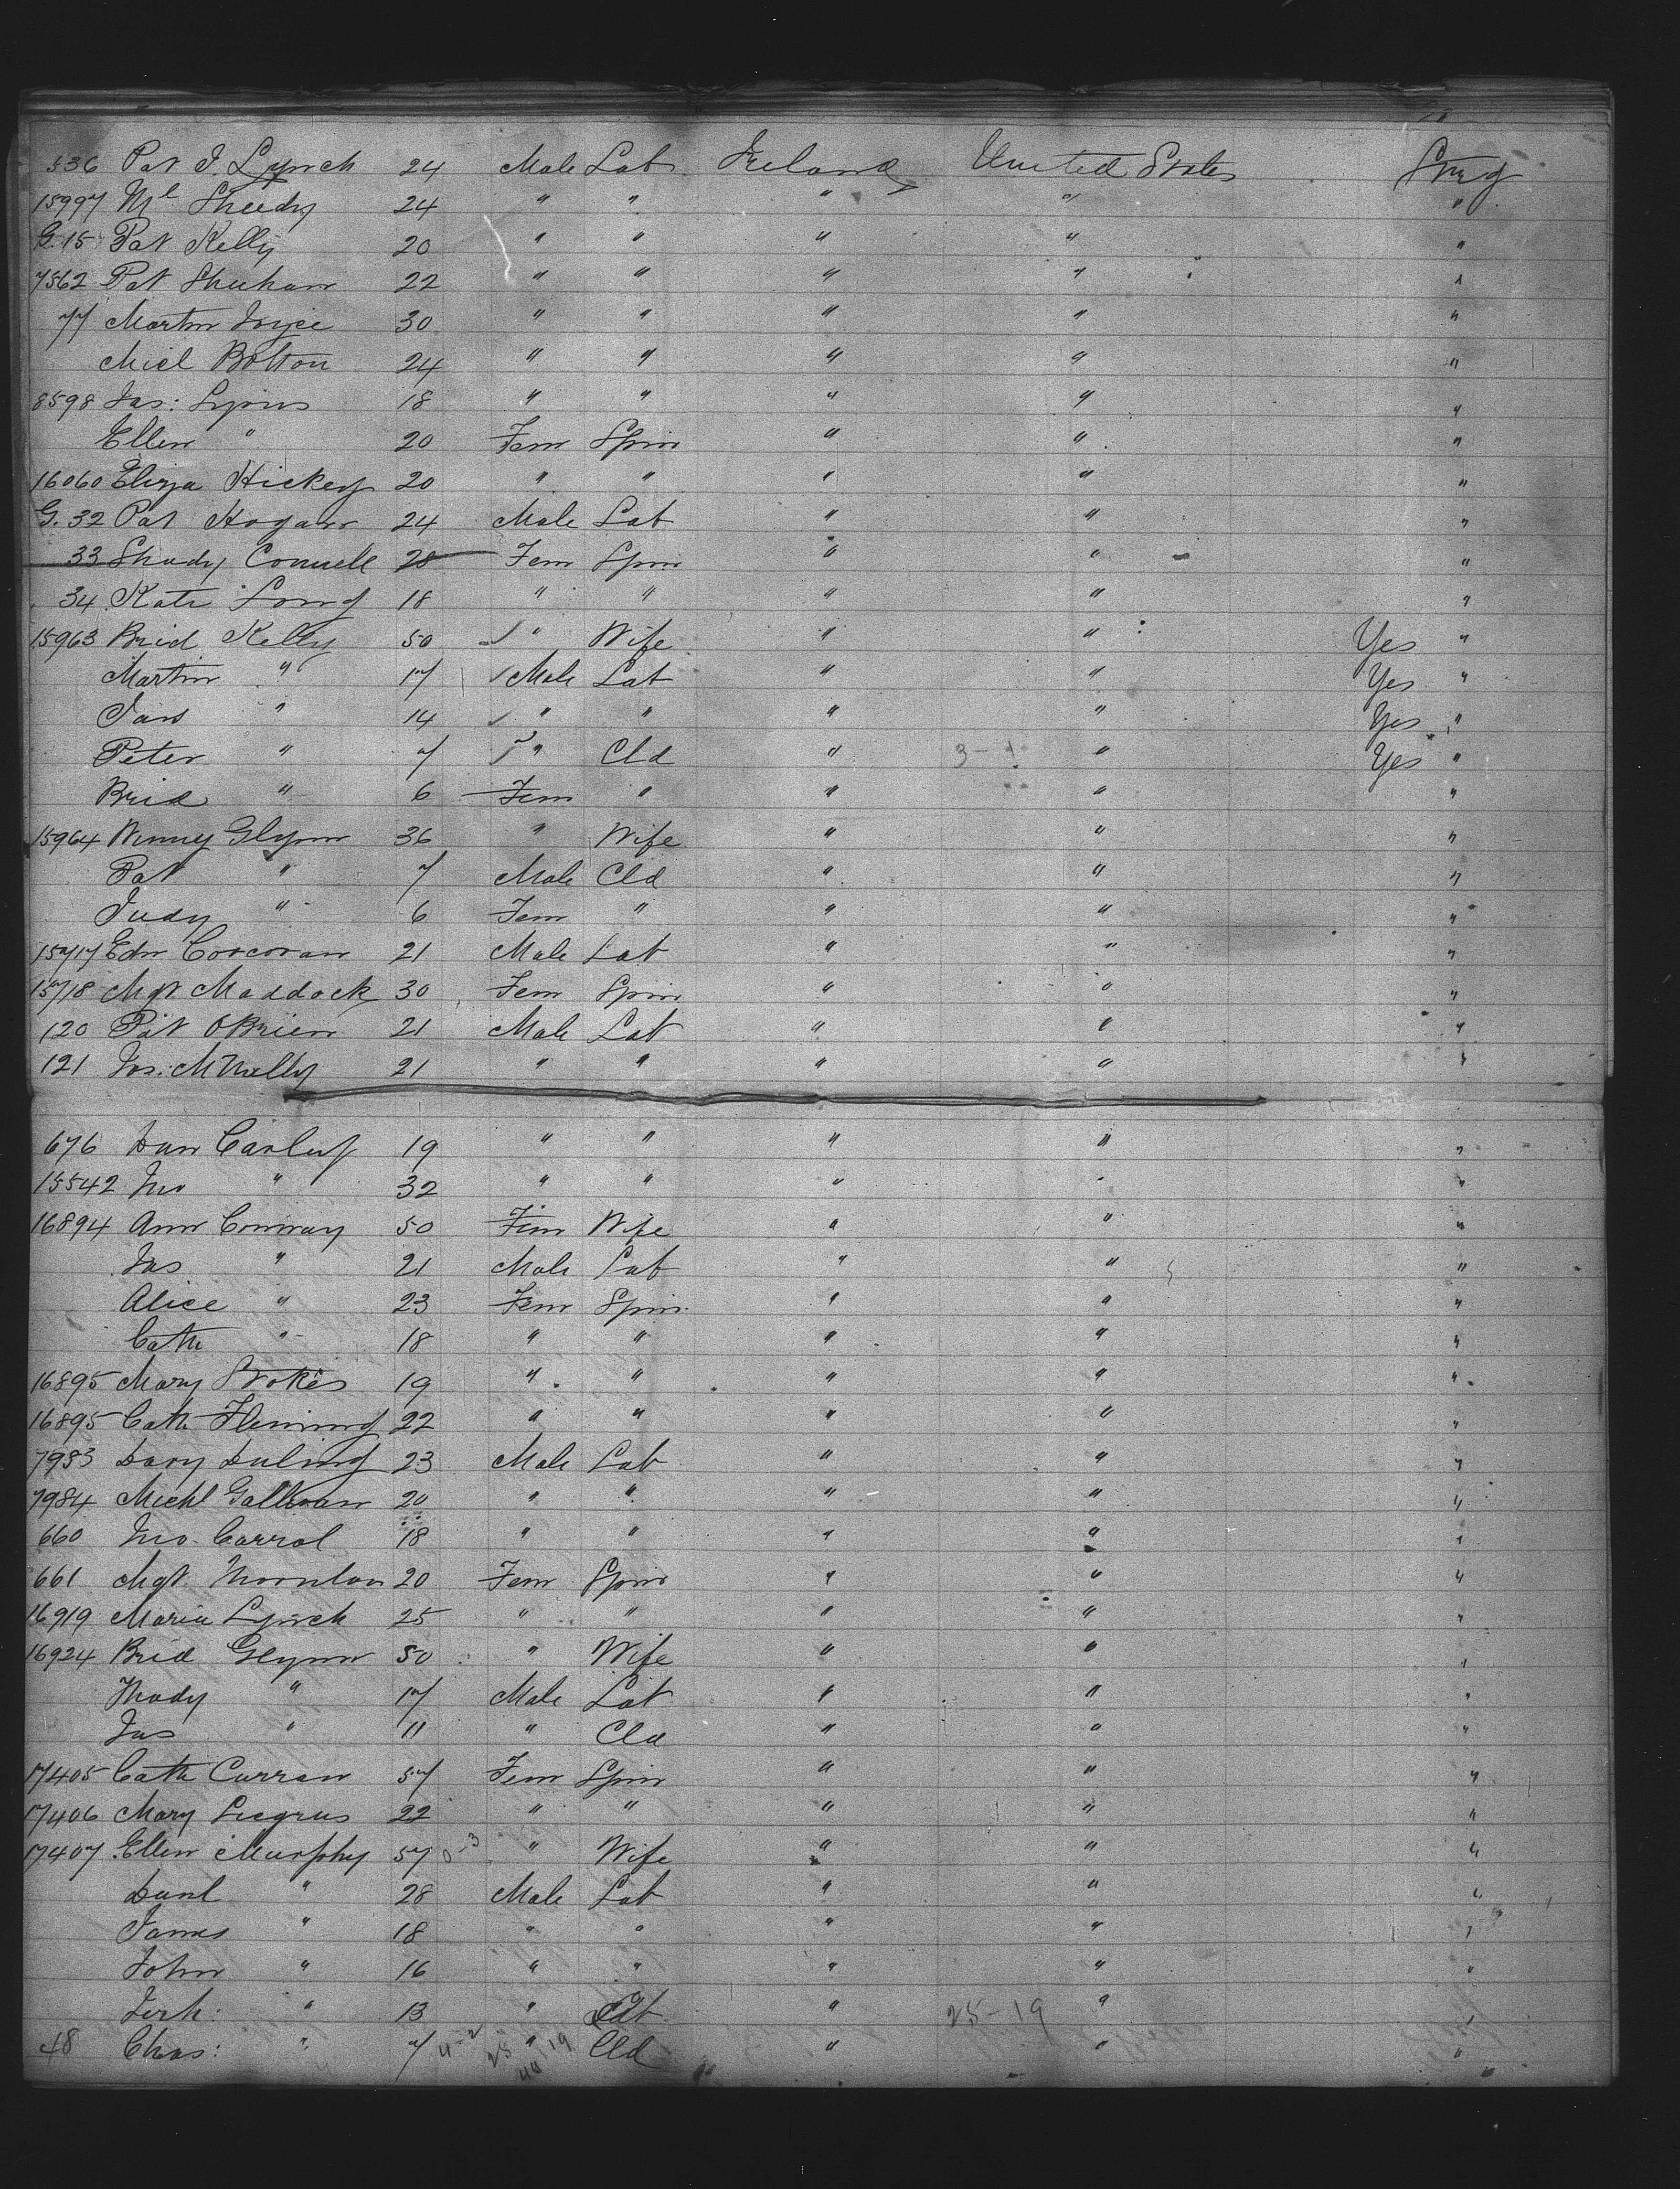 536 Pat J. Lynch 24 Male Lab Ireland United States Strg
15997 Ml Sheedy 24 " " " " "
G. 15 Pat Kelly 20 " " " " "
7562 Pat Sheehan 22 " " " " "
77 Martin Joyce 30 " " " " "
Micl Bolton 24 " " " " "
8598 Jas: Lyons 18 " " " " "
Ellen " 20 Fem Spin " " "
16060 Eliza Hickey 20 " " " " "
G. 32 Pat Hogan 24 Male Lab " " "
33 Connell 28 Fem Spin " " "
34 Kate Long 18 " " " " "
15963 Brid Kelly 50 " Wife " " Yes "
Martin " 17 Male Lab " " Yes "
" 14 " " " " Yes "
Peter " 7 " Cld " 3-1 " Yes "
Brid " 6 Fem " " " "
15964 Winny Glynn 36 " Wife " " "
Pat " 7 Male Cld " " "
Judy " 6 Fem " " " "
15717 Edw Corcoran 21 Male Lab " " "
15718 Mgt Maddock 30 Fem Spin " " "
120 Pat OBrien 21 Male Lab " " "
121 Jas: McNally 21 " " " " "
676 Dan Carley 19 " " " " "
15542 Jno " 32 " " " " "
16894 Ann Conway 50 Fem Wife " " "
Jas " 21 Male Lab " " "
Alice " 23 Fem Spin " " "
Cath " 18 " " " " "
16895 Mary Stokes 19 " " " " "
16895 Cath Fleming 22 " " " " "
7983 Davy 23 Male Lab " " "
7984 Michl Gallivan 20 " " " " "
660 Jno. Carrol 18 " " " " "
661 Mgt Thornton 20 Fem Spin " " "
16919 Maria Lynch 25 " " " " "
16924 Brid Glynn 50 " Wife " " "
Thady " 17 Male Lab " " "
Jas " 11 " Cld " " "
17405 Cath Curran 57 Fem Spin " " "
17406 Mary 22 " " " " "
17407 Ellen Murphy 57 0-3 " Wife " " "
Danl " 28 Male Lab " " "
James " 18 " " " " "
John " 16 " " " " "
Jerh: " 13 " " 25-19 " "
48 Chas: " 7 4-2 25 " 19 Cld " " "
40